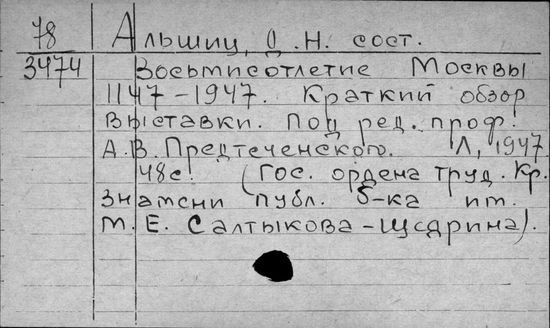 78 Альшиц, Д. Н. сост.
3474 Восьмисотлетие Москвы
1147-1947. Краткий обзор
выставки. Под ред. проф.
А. В. Предтеченского. Л, 1947
48с. (Гос. ордена труд. Кр.
Знамени публ. б-ка им.
М. Е. Салтыкова-Щедрина).